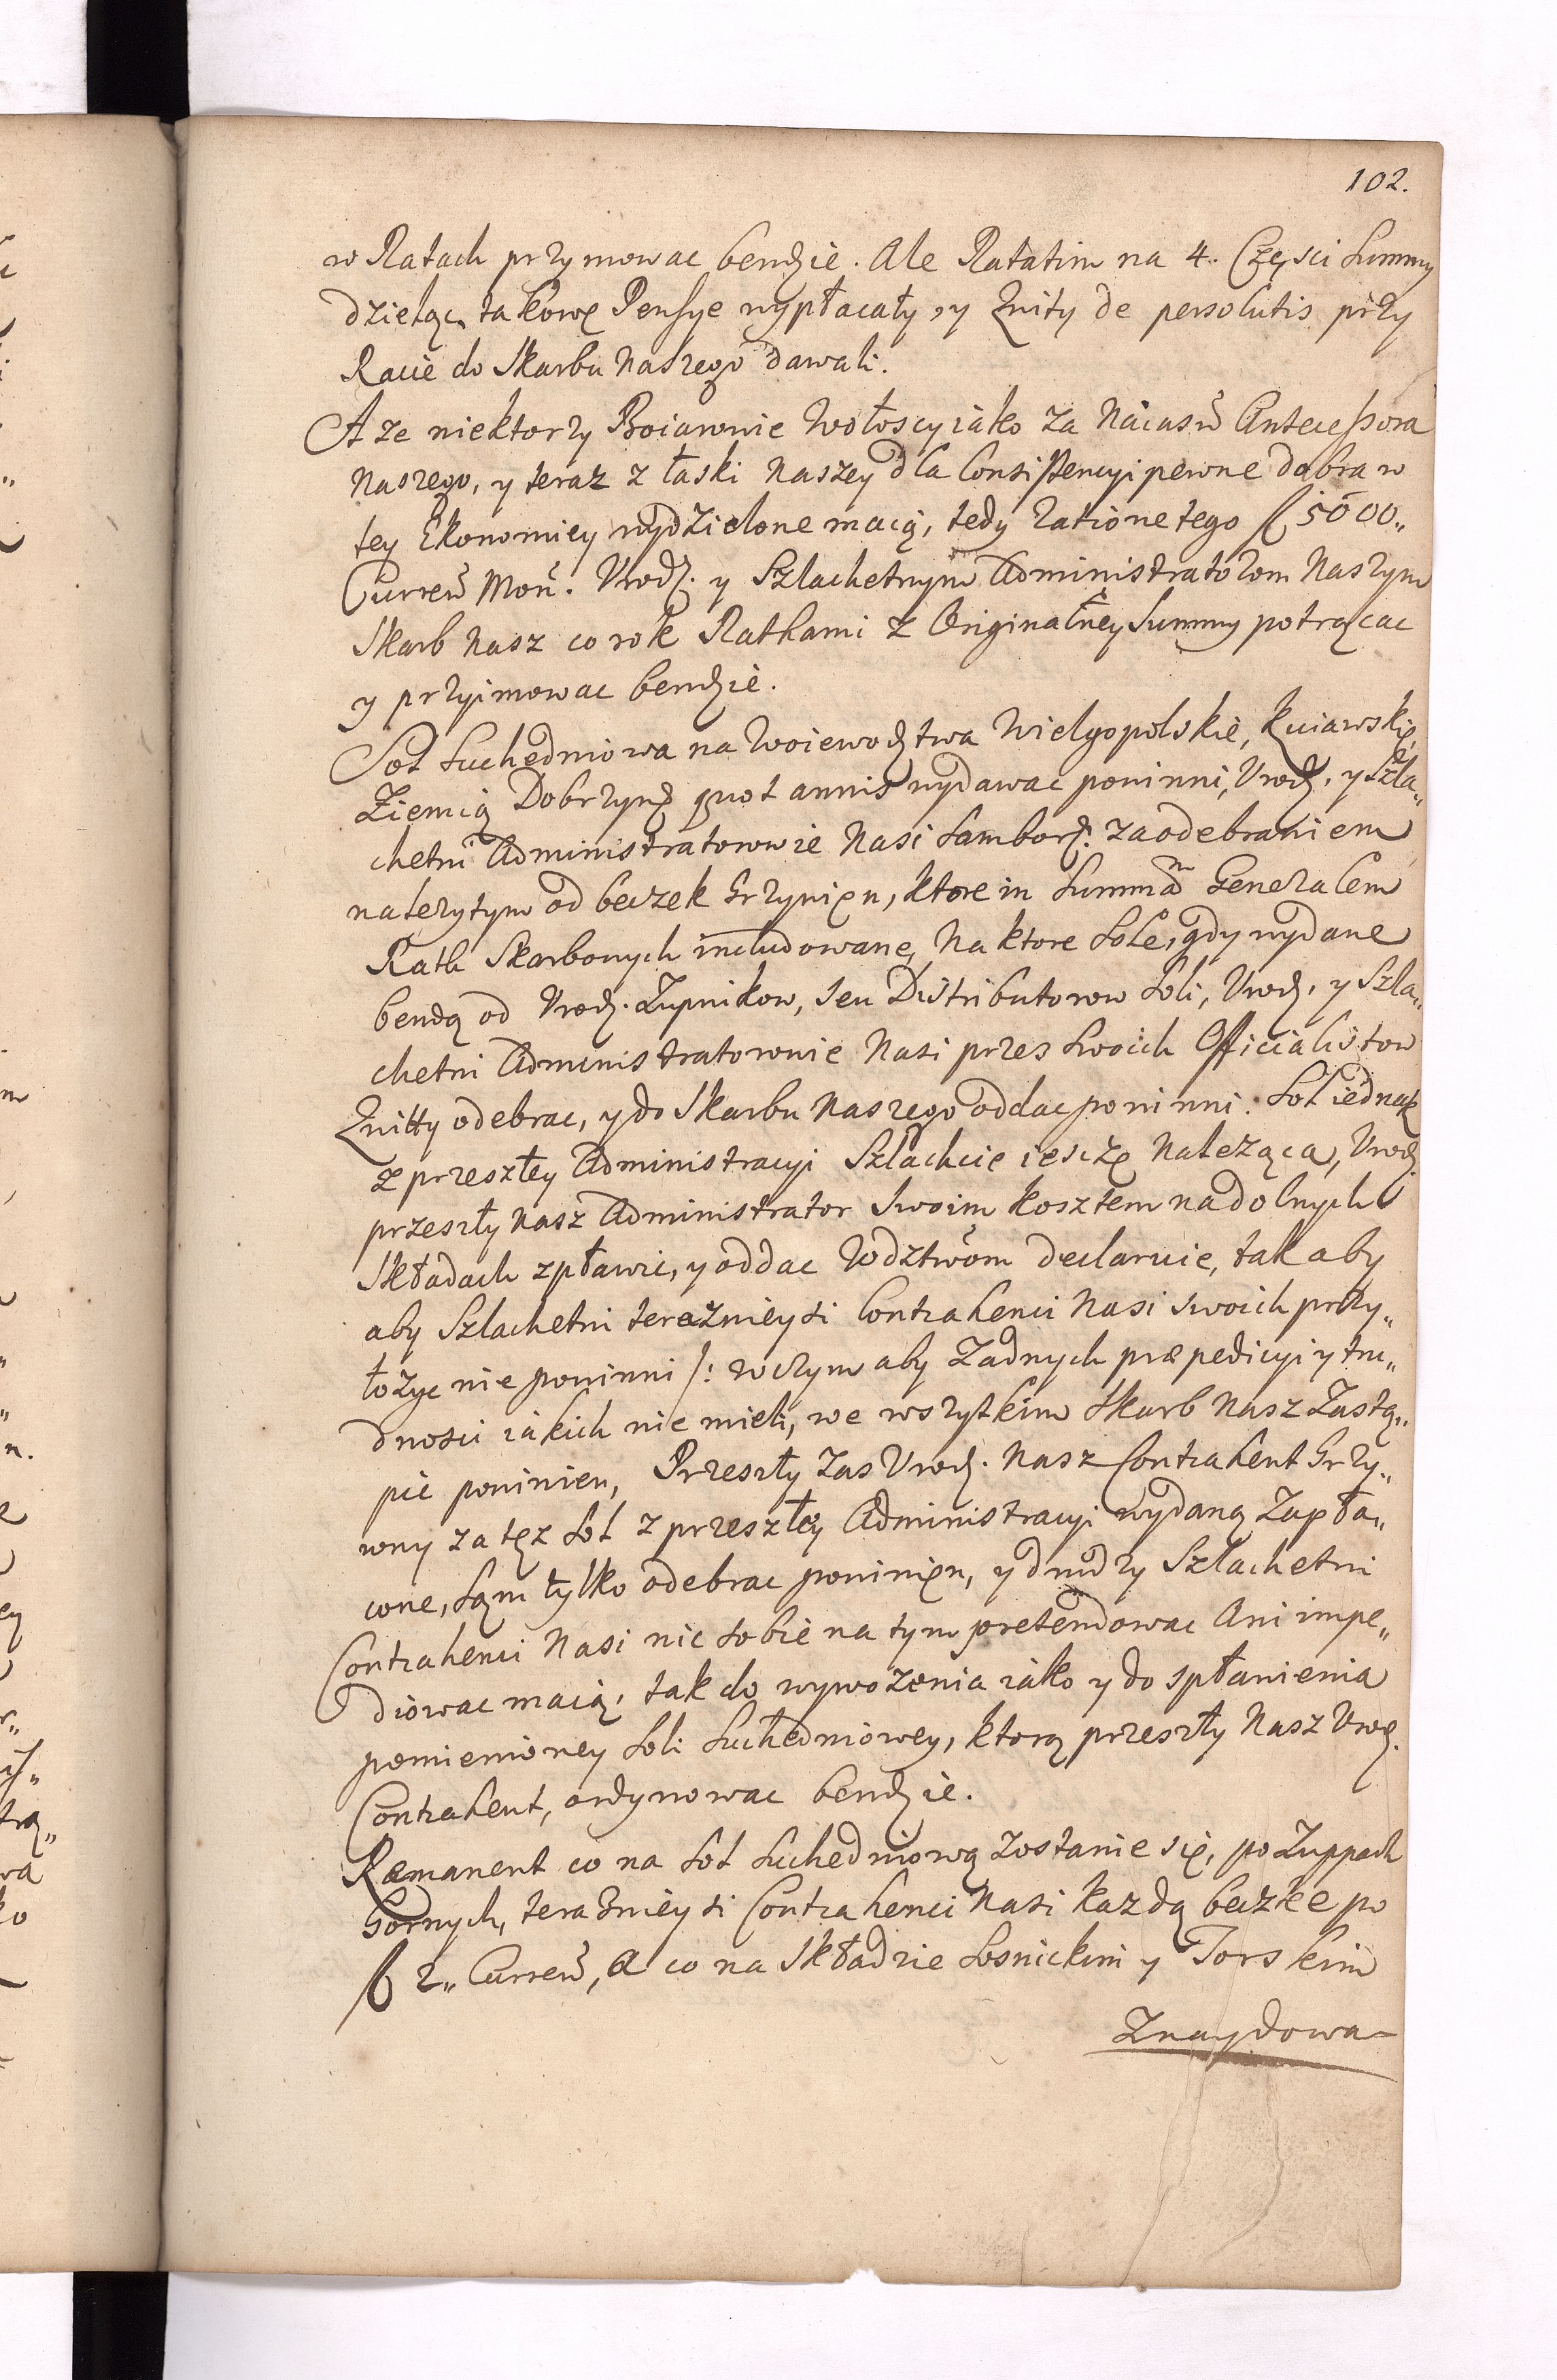 102.
w Ratach przymowac bendzie. Ale Ratatim na 4. Części Summy
dzieląc, takowe Pensye wypłacały, y Kwity de persolutis przy
Racie do Skarbu Naszego dawali.
A ze niektorzy Boiarowie Wołoscy iako za Naiasń Antecessora
Naszego, y teraz z łaski Naszey dla Consistencyi pewne dobra w
tey Ekonomiey wydzielone maią, tedy ratione tego fl 5000„
Curreñ Moñ. Vrodz. y Szlachetnym Administratorom Naszym
Skarb Nasz co rok Rathami z Originalney Summy potrącac
y przyimowac bendzie.
Sol Suchedniowa na Woiewodztwa Wielgopolskie, Kuiawskie,
Ziemię Dobrzyns quot annis wydawac powinni, Vrodz. y Szla„
chetni Administratorowie Nasi Samborz. za odebraniem
nalezytym od beczek Grzywien, ktore in Summam Generalem
Rath Skarbowych includowane, Na ktore Sole, gdy wydane
bendą od Vrodz. Zupnikow, seu Distributorow Soli, Vrodz. y Szla„
chetni Administratorowie Nasi przes Swoich Officialistow
Kwitty odebrac, y do Skarbu Naszego oddac powinni. Sol iednak
z przeszłey Administracyi Szlachcie iescze Nalezącą, Vrodz.
przeszły Nasz Administrator Swoim Kosztem na dolnych
Składach zpławic, y oddac Wodztwom declaruie, tak aby
aby Szlachetni teraznieysi Contrahenci Nasi swoich przy„
łozyc nie powinni /: w czym aby Zadnych præpedicyi y tru„
dnosci iakich nie mieli, we wszytkim Skarb Nasz Zastą„
pic powinien, Przeszły zas Vrodz. Nasz Contrahent Grzy„
wny za tęz Sol z przeszłey Administracyi wydaną Zapła„
cone, Sam tylko odebrac powinien, y drudzy Szlachetni
Contrahenci Nasi nic Sobie na tym pretendowac Ani impe„
diowac maią, tak do wywozenia iako y do spławienia
pomienioney Soli Suchedniowey, ktorą przeszły Nasz Vrodz.
Contrahent, ordynowac bendzie.
Remanent co na Sol Suchedniową zostanie się, po Zuppach
Gornych, teraznieysi Contrahenci Nasi kazdą beczke po
fl 2„ Curreñ, a co na Składzie Sosnickim y Torskim
Znaydowa-